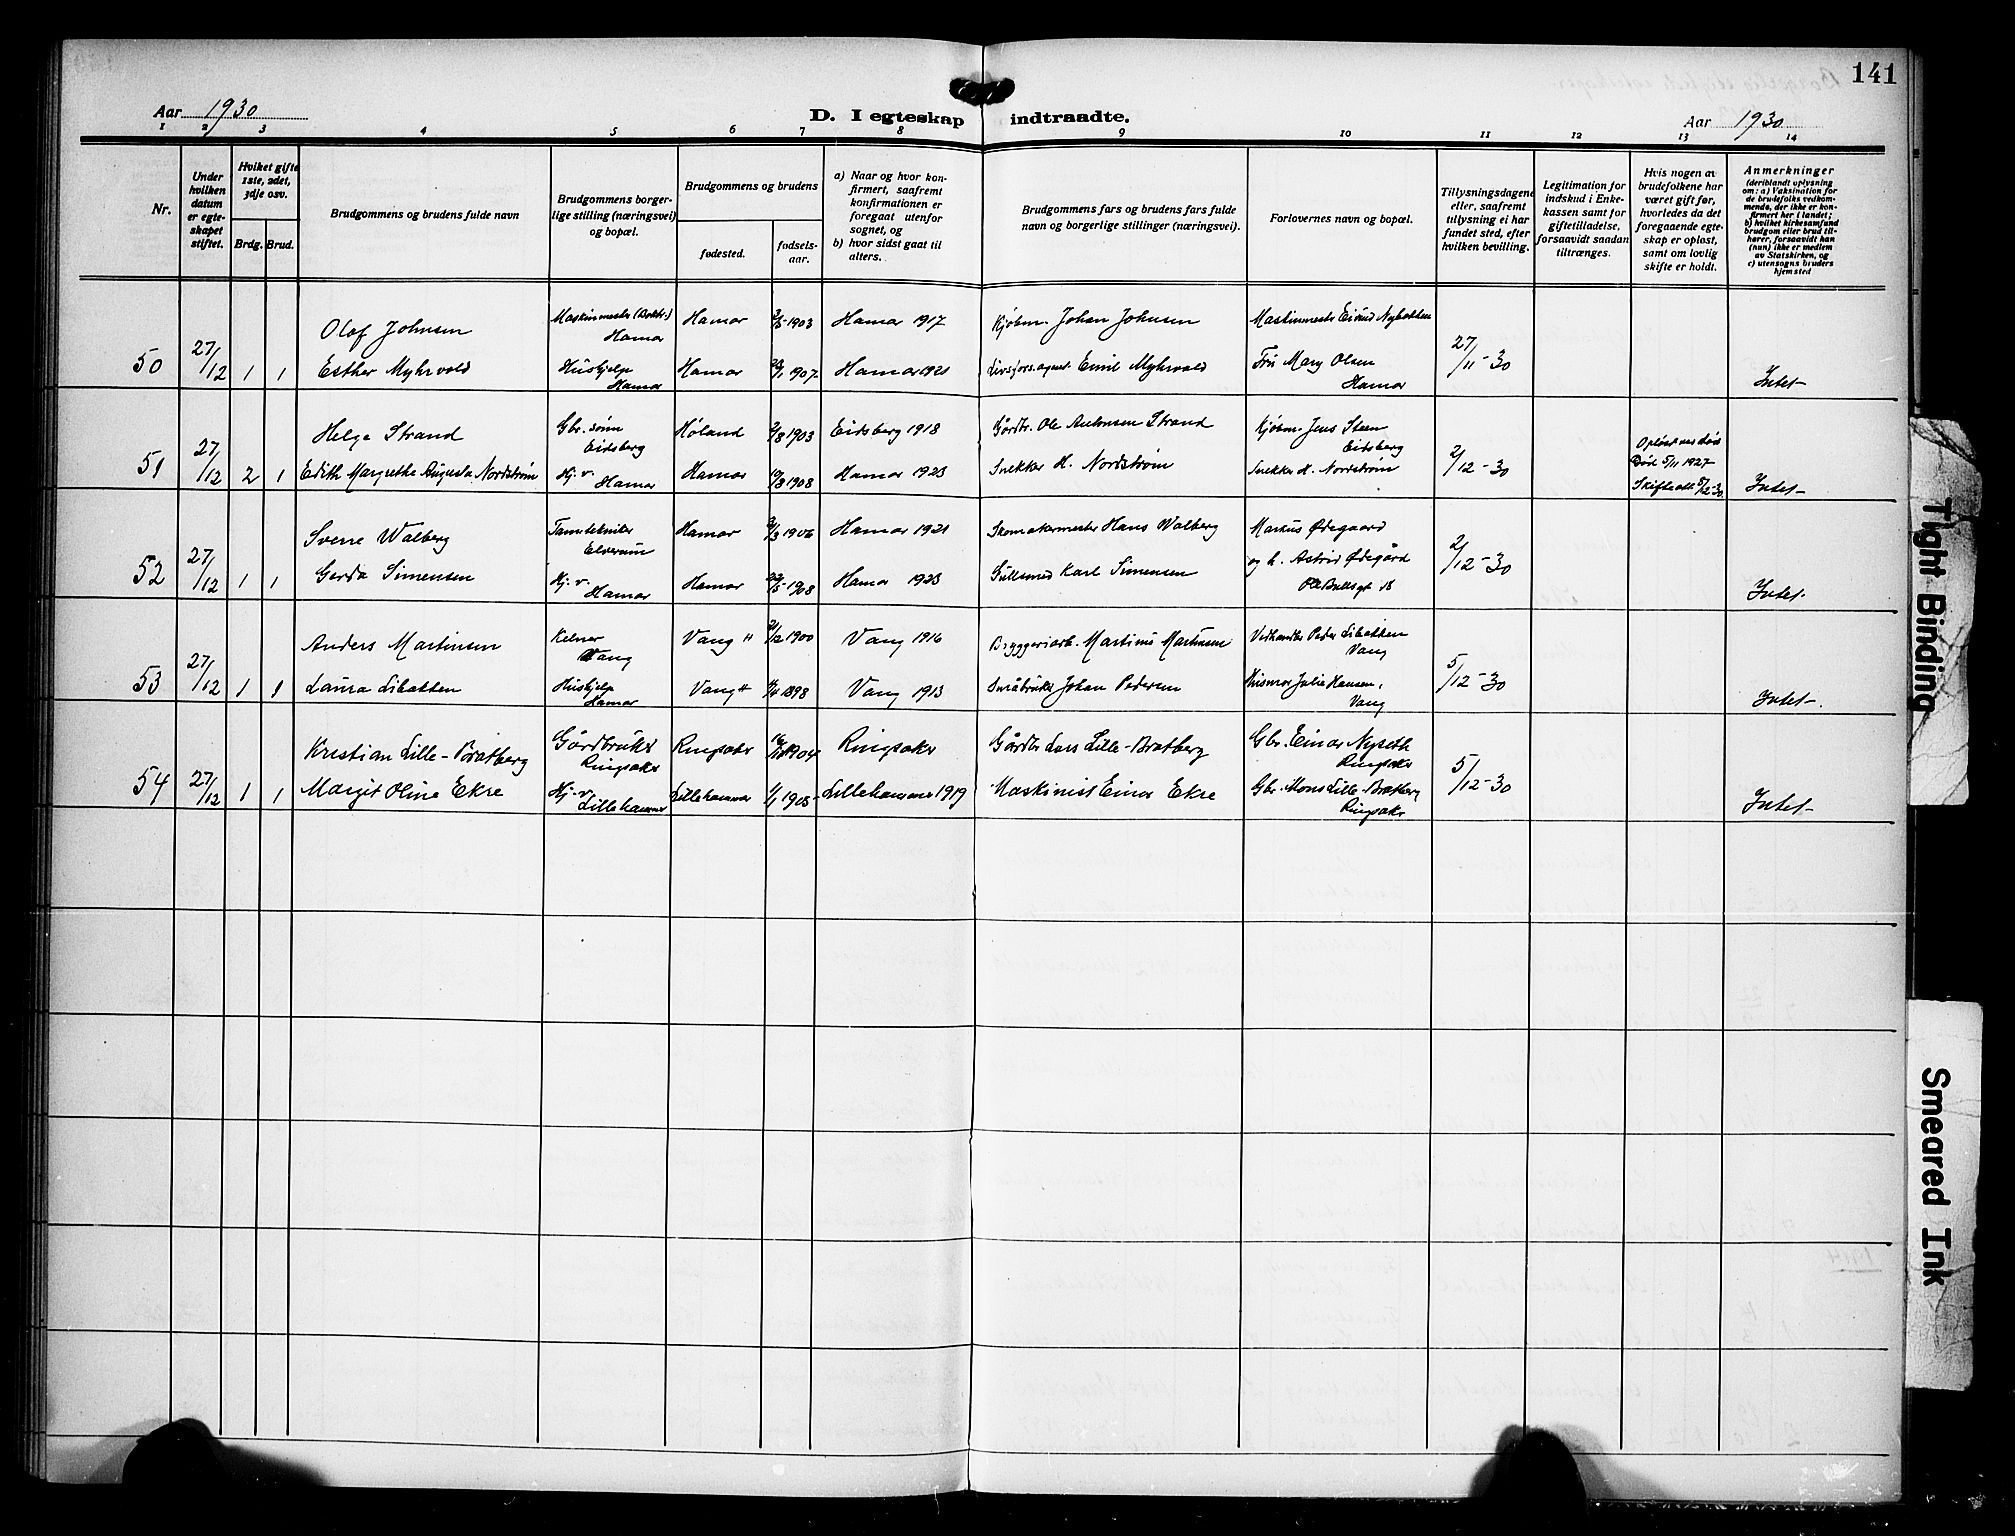 141
Aar 1930
D. I egteskap indtraadte.
Aar 1930
1 2 3 4 5 6 7 8 9 10 11 12 13 14
Nr.
Under hvilken datum er egteskapet stiftet.
Hvilket gifte 1ste, 2det, 3dje osv.
Brdg. Brud.
Brudgommens og brudens fulde navn
Brudgommens borgerlige stilling (næringsvei) og bopæl.
Brudgommens og brudens
fødested.
fødselsaar.
a) Naar og hvor konfirmert, saafremt konfirmationen er foregaat utenfor sognet, og
b) hvor sidst gaat til alters.
Brudgommens fars og brudens fars fulde navn og borgerlige stillinger (næringsvei).
Forlovernes navn og bopæl.
Tillysningsdagene eller, saafremt tillysning ei har fundet sted, efter hvilken bevilling.
Legitimation for indskud i Enkekassen samt for giftetilladelse, forsaavidt saadan tiltrænges.
Hvis nogen av brudefolkene har været gift før, hvorledes da det foregaaende egteskap er opløst, samt om lovlig skifte er holdt.
Anmerkninger (deriblandt oplysning om: a) Vaksination for de brudefolks vedkommende, der ikke er konfirmert her i landet; b) hvilket kirkesamfund brudgom eller brud tilhører, forsaavidt han (hun) ikke er medlem av Statskirken, og c) utensogns bruders hjemsted
Olaf Johnsen Maskinmester Hamar Hamar 1903 Hamar 1917 Kjøbm. Johan Johnsen Maskinmester Eivind Nybakken
50 27/12 1 1 Esther Myhrvold Hushjelp Hamar Hamar 1907 Hamar 1921 Livsfors.agent Emil Myhrvold Fru Mary Olsen Hamar 27/11-30 Intet-
Helge Strand Gbr. sønn Eidsberg Høland 1903 Eidsberg 1918 Gårdbr. Ole Strand Kjøbm. Jens Steen Eidsberg
51 27/12 2 1 Edith Margrethe Augusta Nordstrøm Hj. v. Hamar Hamar 1908 Hamar 1923 Snekker H. Nordstrøm Snekker H. Nordstrøm 2/12-30 Opløst ved død Død 5/11 1927 Skifteatt. 5/12-30 Intet-
Sverre Walberg Tanntekniker Elverum Hamar 1906 Hamar 1921 Skomakermester Hans Walberg Markus Ødegaard
52 27/12 1 1 Gerda Simensen Hj. v. Hamar Hamar 1908 Hamar 1923 Gullsmed Karl Simensen og h. Astrid Ødegård Ole Bullsgt 18 2/12-30 Intet.
Anders Martinsen Kelner Vang Vang H 1900 Vang 1916 Bryggeriarb. Martinus Martinsen Vedhandler Peder Libakken Vang
53 27/12 1 1 Laura Libakken Hushjelp Hamar Vang H 1898 Vang 1913 Småbruker Johan Pedersen Julie Hansen, Vang 5/12-30 Intet-.
Kristian Lille-Bratberg Gårdbruker Ringsaker Ringsaker 1904 Ringsaker Gårdbr. Lars Lille-Bratberg Gbr. Einar Nyseth Ringsaker
54 27/12 1 1 Margit Oline Ekre Hj. v. Lillehammer Lillehammer 1/1 1905 Lillehammer 1919 Maskinist Einar Ekre Gbr. Mons Lille-Bratberg Ringsaker 5/12-30 Intet-
Tight Binding
Smeared Ink